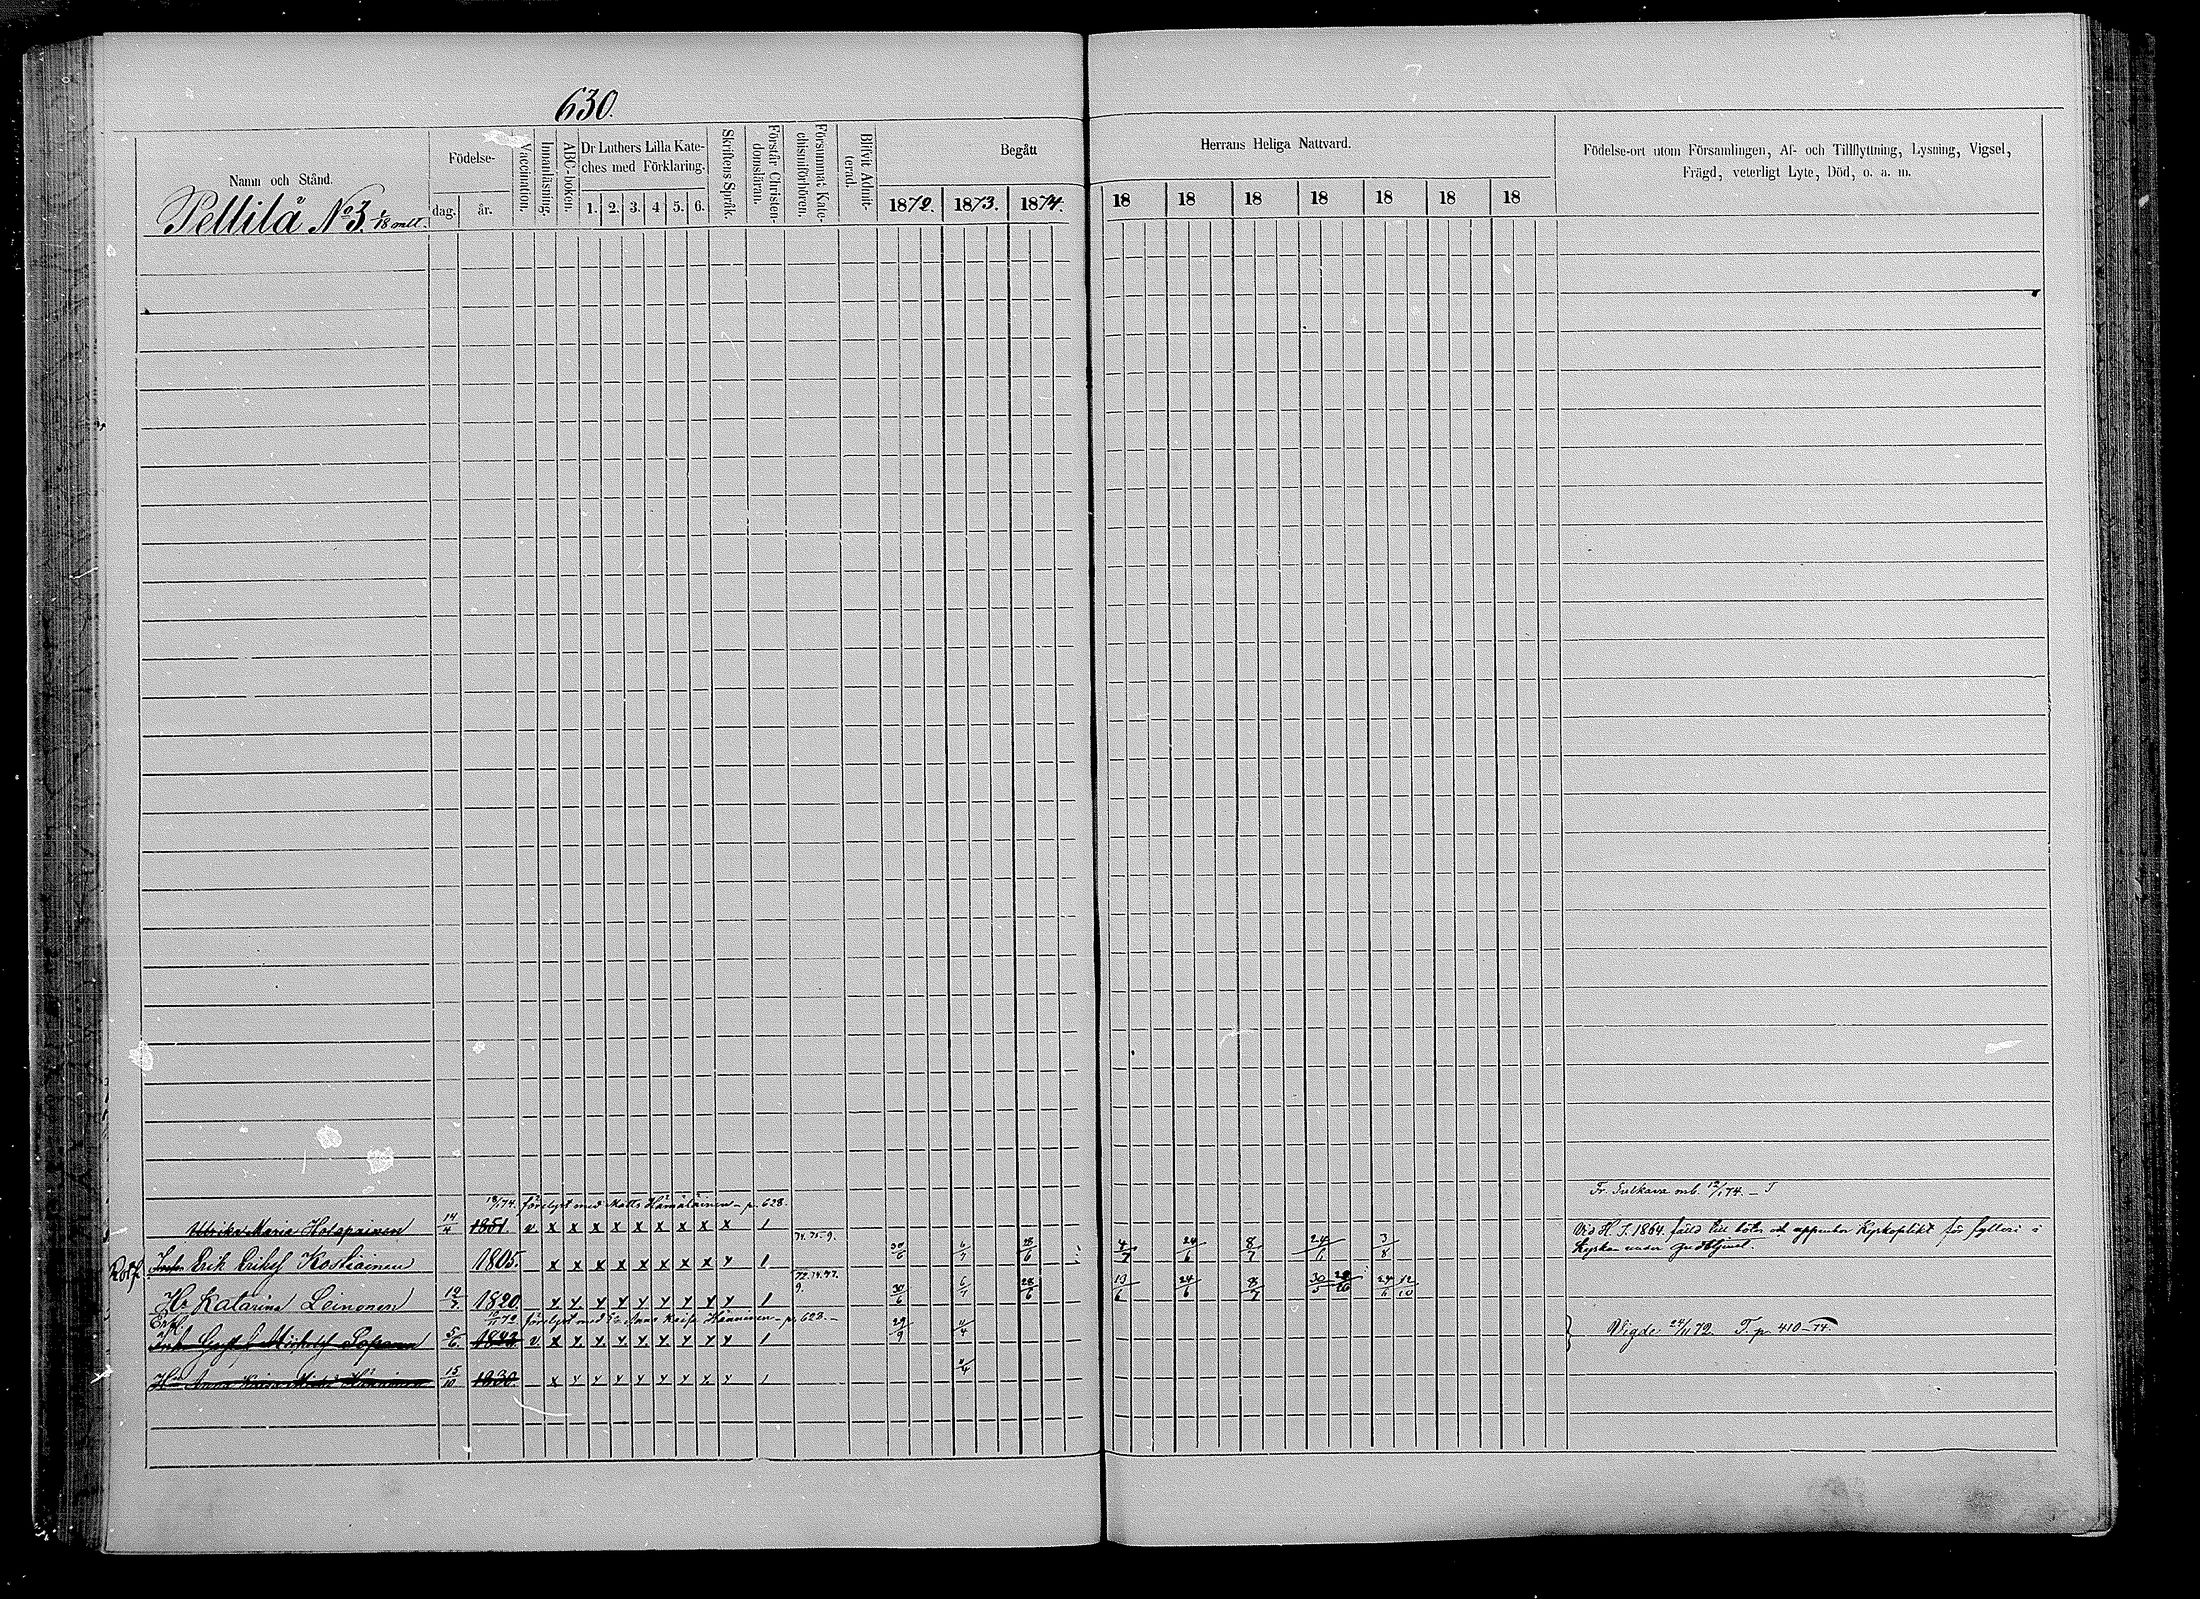 630.
Namn och Stånd.
Födelse-
dag.
år.
Vaccination.
Innanläsning
ABC-boken.
Dr Luthers Lilla Kate-
ches med Förklaring.
1. 2. 3. 4 5. 6.
Skriftens Språk.
Förstår Christen-
domsläran.
Försummat Kate-
chismiförhören.
Blifvit Admit-
terad.
Begått
1872. 1873. 1874.
Herrans Heliga Nattvard.
18 18 18 18 18 18 18
Födelse-ort utom Församlingen, Af- och Tillflyttning, Lysning, Vigsel,
Frägd, veterligt Lyte, Död, o. a. m.
Pellilä No 3. 1/8 mtl.
förelyst med Matts Hämäläinen - p. 628.
Fr. Sulkava mb. 12/1 74. - T
Ulrika Maria Holopainen 14/4 1851. v x x x x x x x x x 1
74. 75. 9.
Vid H. T. 1864. fäld till böter och uppenbar Kyrkoplikt för fylleri i
Kyrkan under gudstjenst.
Erik Eriksf Kostiainen 1805. x x x x x x x x y 1 30/6 6/7 28/6 4/7 24/6 8/7 24/6 3/8
72. 74. 77.
9.
Hu Katarina Leinonen 12/7 1820. x y y y y y y y y 1 30/6 6/7 28/6 13/6 24/6 8/7 24/6 12/10
förelyst med Anna Kaisa Hänninen - p. 623. -
5/6 1823. v. x y y y y y y y y 1 29/9 11/4
Wigde 24/11 72. T. p. 410 - 74.
Hu Anna Kaisa Hänninen 15/10 1830. x y y y y y y y y 1 11/4